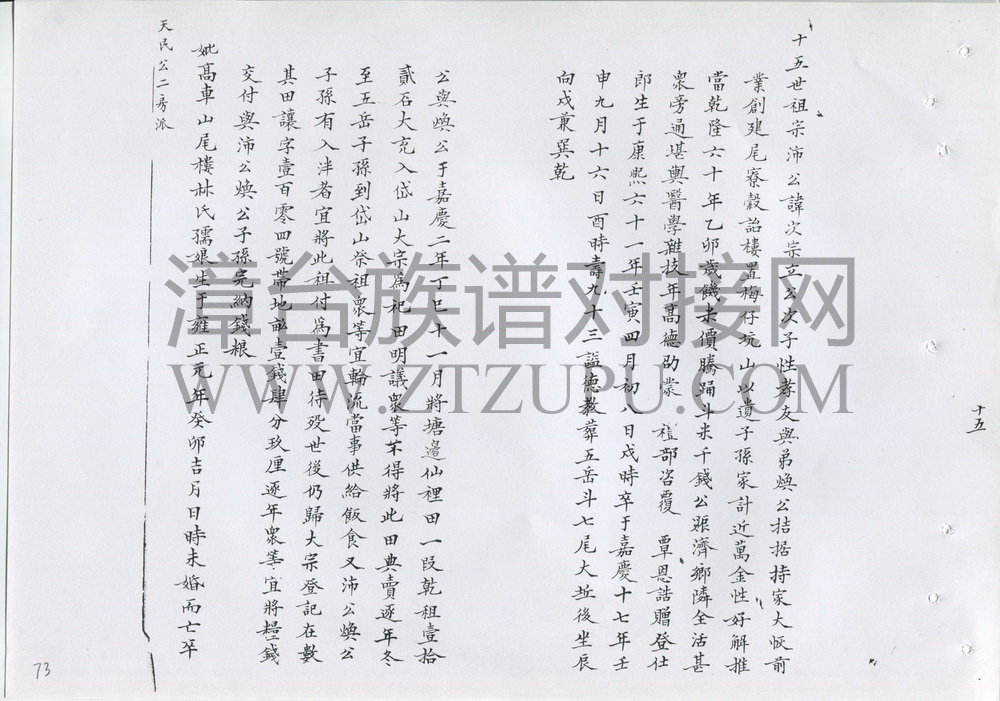 十五
十五世祖宗沛公諱次宗立公次子性孝友與弟煥公拮据持家大恢前
業創建尾寮穀詒樓置梅仔坑山以遺子孫家計近萬金性好解推
當乾隆六十年乙卯歲饑米價騰踊斗米千錢公賑濟鄉隣全活甚
衆旁通堪輿醫學雜技年高德劭蒙 禮部咨覆 覃恩誥贈登仕
郎生于康熙六十一年壬寅四月初八日戌時卒于嘉慶十七年壬
申九月十六日酉時壽九十三諡德教葬五岳斗七尾大坵後坐辰
向戌兼巽乾
公與煥公于嘉慶二年丁巳十一月將塘邊仙裡田一段乾租壹拾
貳石大充入岱山大宗為祀田明議衆等不得將此田典賣逐年冬
至五岳子孫到岱山祭祖衆等宜輪流當事供給飯食又沛公煥公
子孫有入泮者宜將此租付為書田待歿世後仍歸大宗登記在數
其田讓字壹百零四號帶地畝壹錢肆分玖厘逐年衆等宜將糧錢
交付與沛公煥公子孫完納錢根
妣高車山尾樓林氏孺娘生于雍正元年癸卯吉月日時未婚而亡卒
天民公二房派
73
漳台族谱对接网
WWW.ZTZUPU.COM